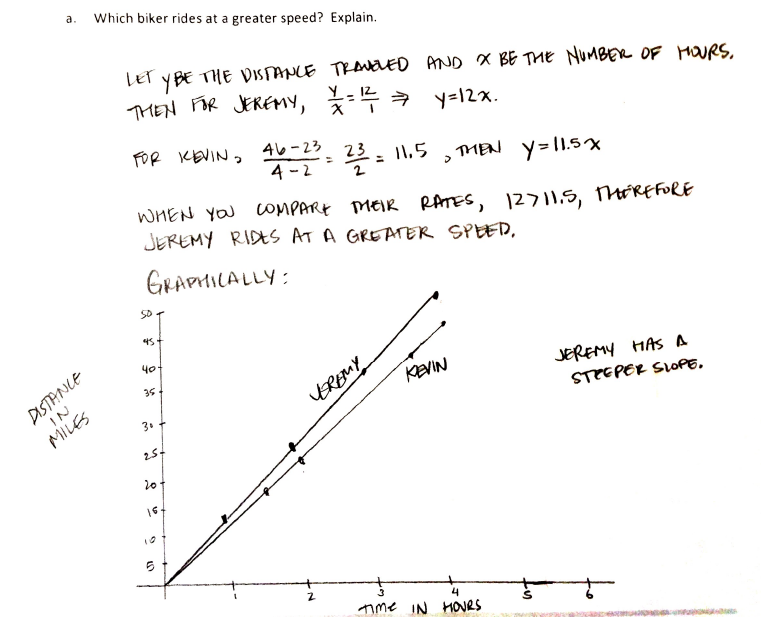 a. Which biker rides at a greater speed? Explain.
LET y BE THE DISTANCE TRAVELED AND x BE THE NUMBER OF HOURS.
THEN FOR JEREMY, y/x = 12/1 ⇒ y=12x.
FOR KEVIN, 46-23/4-2 = 23/2 = 11.5, THEN y=11.5x
WHEN YOU COMPARE THEIR RATES, 12>11.5, THEREFORE
JEREMY RIDES AT A GREATER SPEED.
GRAPHICALLY:
50
45
40
35
30
25
20
15
10
5
DISTANCE
IN
MILES
JEREMY
KEVIN
JEREMY HAS A
STEEPER SLOPE.
1 2 3 4 5 6
TIME IN HOURS